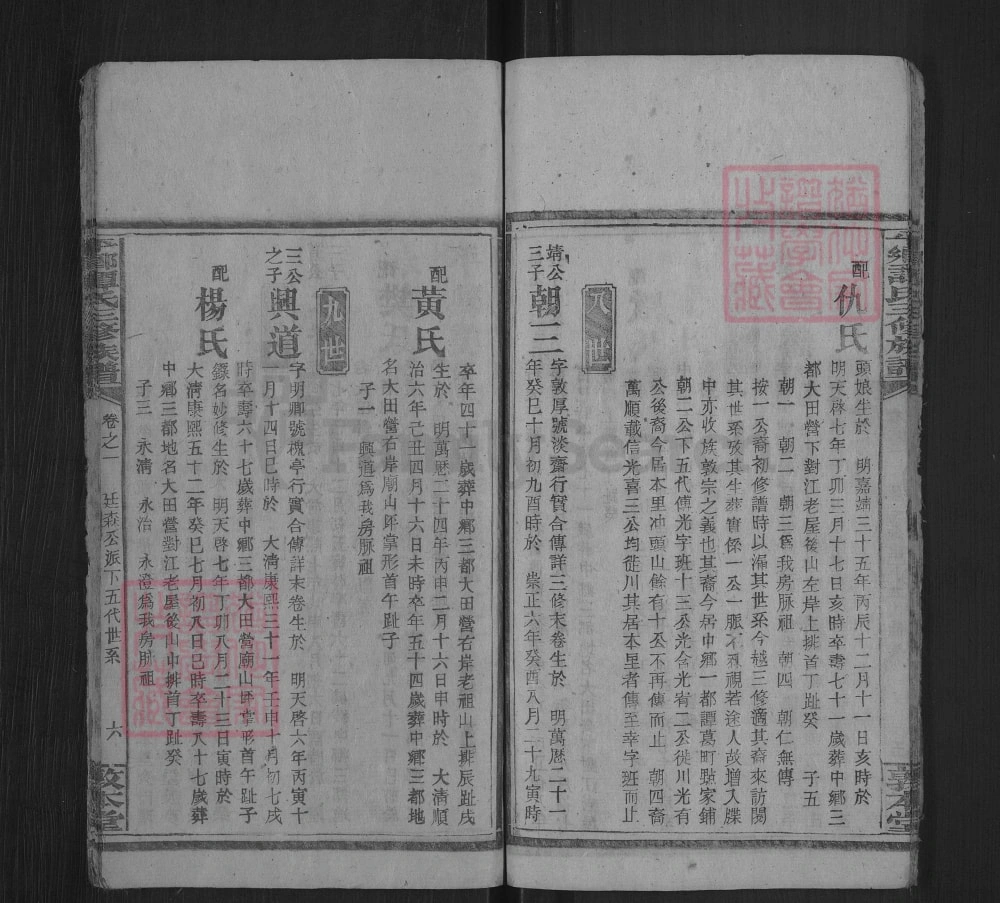 配仇氏
頭娘生於 明嘉靖三十五年丙辰十二月十一日亥時於
明天啓七年丁卯三月十七日亥時卒壽七十一歲葬中鄉三
都大田營下對江老屋後山左岸上排首丁趾癸 子五
朝一 朝二 朝三爲我房脈祖 朝四 朝仁無傳
按一公裔初修譜時以漏其世系今越三修適其裔來訪閱
其世系攷其生葬實係一公一脈不忍視若途人故增入牒
中亦收族敦宗之義也其裔今居中鄉一都譚葛町點家鋪
朝二公下五代傳光字班十三公光含光宥二公徙川光有
公後裔今居本里冲頭山餘有十公不再傳而止 朝四裔
萬順載信光喜三公均徙川其居本里者傳至幸字班而止
八世
靖公三子朝三
字敦厚號淡齋行實合傳詳三修末卷生於 明萬曆二十一
年癸巳十月初九酉時於 崇正六年癸酉八月二十九寅時
卒年四十一歲葬中鄉三都大田營右岸老祖山上排辰趾戌
配黃氏
生於 明萬曆二十四年丙申二月十六日申時於 大清順
治六年己丑四月十六日未時卒年五十四歲葬中鄉三都地
名大田營右岸廟山坪掌形首午趾子
子一 興道爲我房脈祖
九世
三公之子興道
字明卿號槐亭行實合傳詳末卷生於 明天啓六年丙寅十
一月十四日巳時於 大清康熙三十一年壬申十月初七戌
時卒壽六十七歲葬中鄉三都大田營廟山坪掌形首午趾子
配楊氏
派名妙修生於 明天啓七年丁卯八月二十三日寅時於
大清康熙五十二年癸巳七月初八日巳時卒壽八十七歲葬
中鄉三都地名大田營對江老屋後山中排首丁趾癸
子三 永清 永治 永澄爲我房脈祖
卷之一 廷森公派下五代世系 六